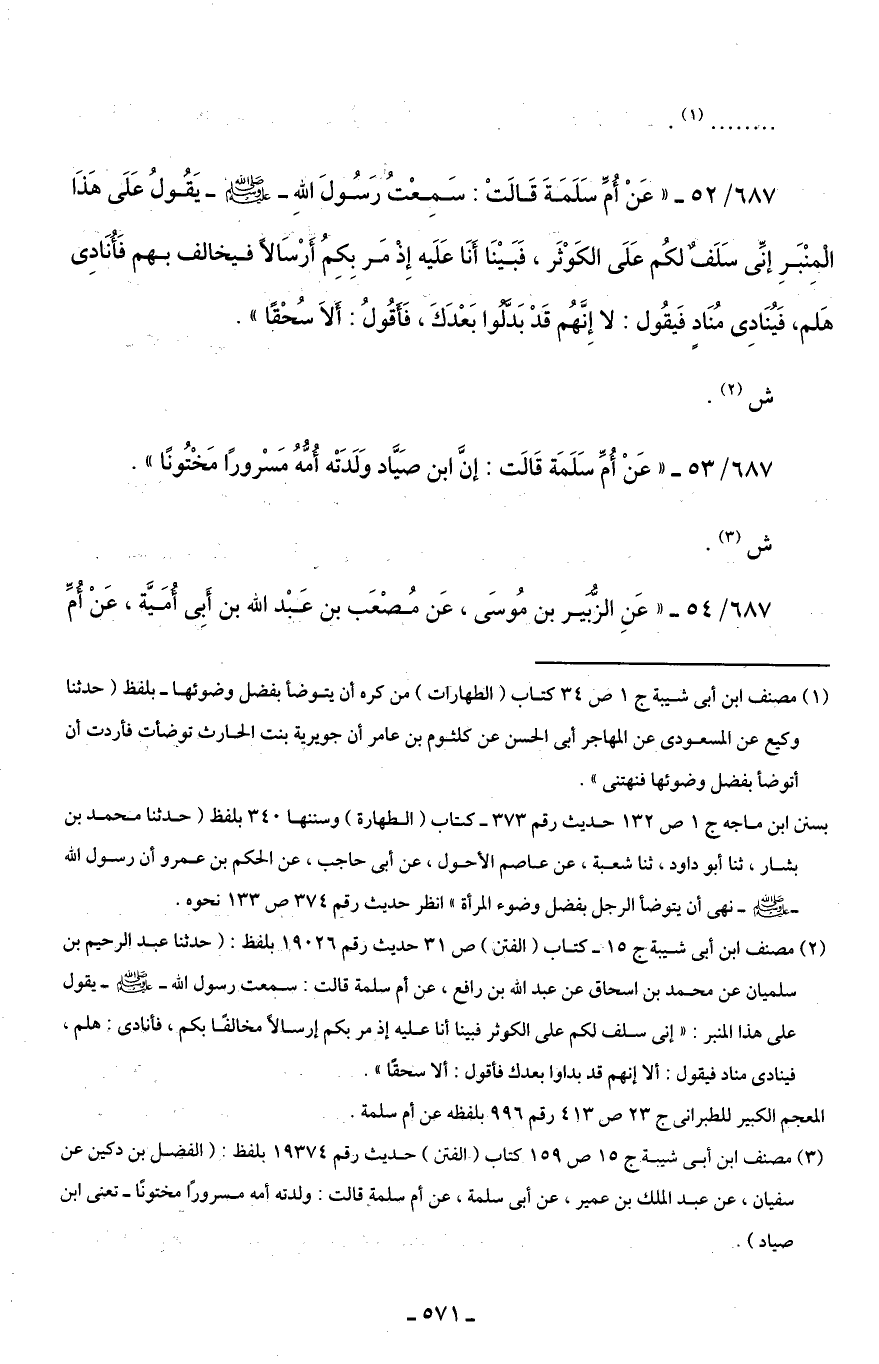 ........ (١) .
٥٢/٦٨٧ ـ « عَنْ أُمِّ سَلَمَةَ قَالَتْ : سَـمِـعْتُ رَسُولَ اللهِ ـ ﷺ ـ يَقُولُ عَلَى هَذَا
الْمِنْبَـرِ إِنِّى سَلَفٌ لكُم عَلَى الكَوْثَر ، فَبَيْنَا أَنَا عَلَيه إِذْ مَـر بِكمُ أَرْسَالاً فـيخالف بـهم فَأُنَادِى
هَلم، فَيُنَادِى مُنَادٍ فَيقُول : لا إِنَّهُم قَدْ بَدَّلُوا بَعْدَكَ ، فَأَقُولُ : أَلاَ سُحْقًا » .
ش (٢) .
٥٣/٦٨٧ ـ « عَنْ أُمِّ سَلَمَة قَالَت : إنَّ ابن صَيَّاد ولَدَتْه أُمُّهُ مَسْرورًا مَخْتُونًا » .
ش (٣) .
٥٤/٦٨٧ ـ « عَنِ الزُّبَيـر بن مُوسَى ، عَن مُـصْعَب بن عَـبْد الله بن أَبِى أُمَيَّة ، عَنْ أُمِّ
(١) مصنف ابن أبى شـيبة ج ١ ص ٣٤ كتـاب ( الطهارات ) من كره أن يتـوضأ بفـضل وضوئهـا ـ بلفظ ( حدثنا
وكيع عن المسعودى عن المهاجر أبى الحسن عن كلثـوم بن عامر أن جويرية بنت الحارث توضأت فأردت أن
أتوضأ بفضل وضوئها فنهتنى » .
بسنن ابن مـاجه ج ١ ص ١٣٢ حـديث رقم ٣٧٣ ـ كتـاب ( الـطهارة ) وسننهـا ٣٤٠ بلفظ ( حـدثنا مـحمـد بن
بشـار ، ثنا أبو داود ، ثنا شعبـة ، عن عـاصم الأحـول ، عن أبى حاجب ، عن الحكم بن عـمرو أن رسـول الله
ـ ﷺ ـ نهى أن يتوضأ الرجل بفضل وضوء المرأة » انظر حديث رقم ٣٧٤ ص ١٣٣ نحوه .
(٢) مصنف ابن أبى شـيبة ج ١٥ ـ كتـاب ( الفتن ) ص ٣١ حديث رقم ١٩٠٢٦ بلفظ : ( حدثنا عبـد الرحيم بن
سلميان عن محمد بن اسحاق عن عبد الله بن رافع ، عن أم سلمة قالت : سـمعت رسول الله ـ ﷺ ـ يقول
على هذا المنبر : « إنى سـلف لكم على الكوثر فبينا أنا عـليه إذ مر بكم إرسـالاً مخالفًـا بكم ، فأنادى : هلم ،
فينادى مناد فيقول : ألا إنهم قد بداوا بعدك فأقول : ألا سحقًا » .
المعجم الكبير للطبرانى ج ٢٣ ص ٤١٣ رقم ٩٩٦ بلفظه عن أم سلمة .
(٣) مصنف ابن أبـى شيبـة ج ١٥ ص ١٥٩ كتاب ( الفتن ) حـديث رقم ١٩٣٧٤ بلفظ : ( الفضـل بن دكين عن
سفيان ، عن عبـد الملك بن عمير ، عن أبى سلمة ، عن أم سلمة قالت : ولدته أمه مـسرورًا مختونًـا ـ تعنى ابن
صياد ) .
ـ ٥٧١ ـ